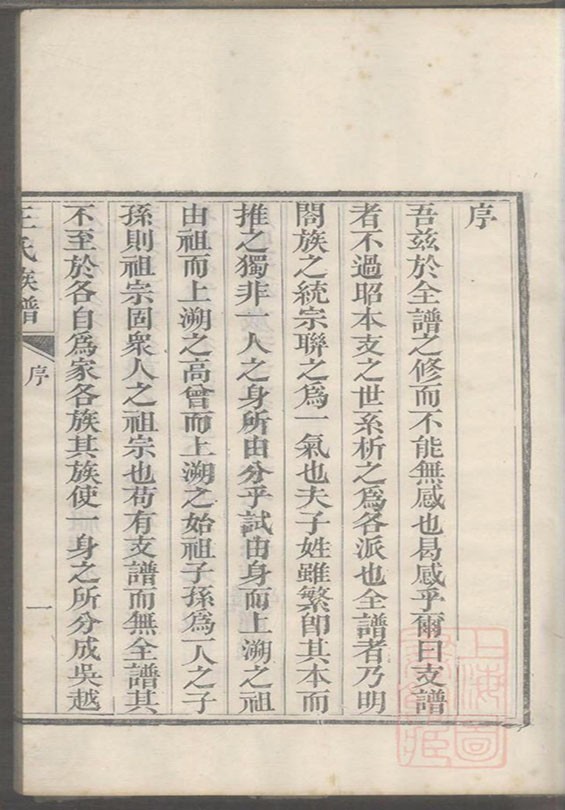 序
吾玆於全譜之修而不能無感也曷感乎爾曰支譜
者不過昭本支之世系析之爲各派也全譜者乃明
閤族之統宗聯之爲一氣也夫子姓雖繁卽其本而
推之獨非一人之身所由分乎試由身而上溯之祖
由祖而上溯之高曾而上溯之始祖子孫爲一人之子
孫則祖宗固衆人之祖宗也苟有支譜而無全譜其
不至於各自爲家各族其族使一身之所分成吳越
王氏族譜
序
一
上海圖